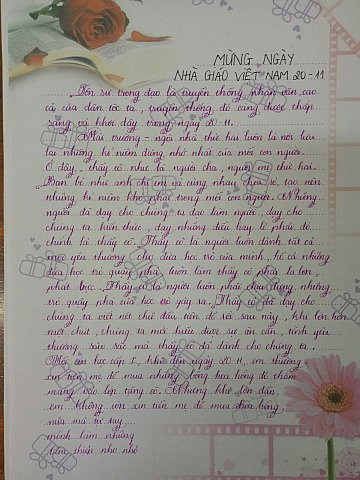 MỪNG NGÀY
NHÀ GIÁO VIỆT NAM 20-11
Tôn sư trọng đạo là truyền thống nhân văn cao
cả của dân tộc ta, truyền thống đó càng được thắp
sáng và khơi dậy trong ngày 20-11.
Mái trường - ngôi nhà thứ hai luôn là nơi lưu
lại những kỉ niệm đáng nhớ nhất của mỗi con người.
Ở đây, thầy cô như là người cha, người mẹ thứ hai.
Bạn bè như anh chị em và cùng nhau chia sẻ, tạo nên
những kỉ niệm khó phai trong mỗi con người. Những
người đã dạy cho chúng ta đạo làm người, dạy cho
chúng ta kiến thức, dạy những điều hay lẽ phải đó
chính là thầy cô. Thầy cô là người luôn dành tất cả
mọi yêu thương cho đứa học trò của mình, kể cả những
đứa học trò quậy phá, luôn làm thầy cô phải la lớn,
phạt học. Thầy cô là người luôn phải chịu đựng những
trò quậy phá của học trò gây ra. Thầy cô đã dạy cho
chúng ta viết nét chữ đầu tiên để rồi sau này, khi lớn hơn
một chút, chúng ta mới hiểu được sự ân cần, tình yêu
thương sâu sắc mà thầy cô đã dành cho chúng ta.
Hồi còn học cấp I, khi đến ngày 20-11, em thường
xin tiền mẹ để mua những bông hoa hồng đỏ thắm
mang vào lớp tặng cô. Nhưng khi lớn dần,
em không còn xin tiền mẹ để mua hoa hồng,
nữa mà tự tay
mình làm những
tấm thiệp nho nhỏ